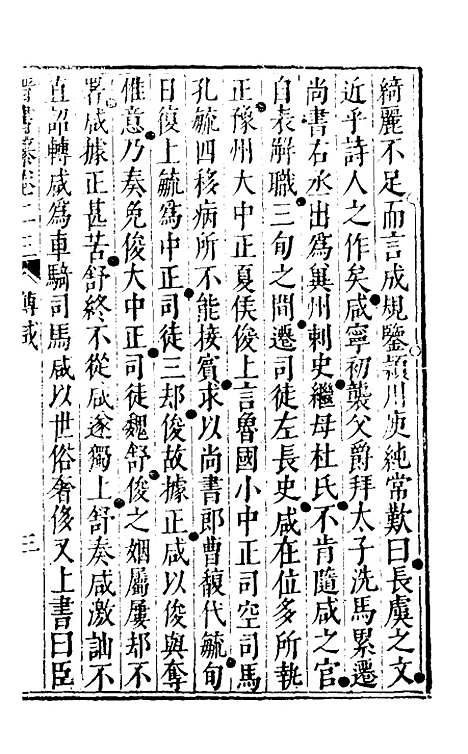 綺麗不足而言成規鑒潁川庾純常歎曰長虞之文
近乎詩人之作矣咸寧初襲父爵拜太子洗馬累遷
尚書右丞出爲兾州刺史繼母杜氏不肯隨咸之官
自表解職三旬之間遷司徒左長史咸在位多所執
正豫州大中正夏侯俊上言魯國小中正司空司馬
孔毓四移病所不能接賓求以尚書郎曹馥代毓旬
日復上毓爲中正司徒三却俊故據正咸以俊與奪
惟意乃奏免俊大中正司徒魏舒俊之姻屬屢却不
署咸據正甚苦舒終不從咸遂獨上舒奏咸激訕不
直詔轉咸爲車騎司馬咸以世俗奢侈又上書曰臣
晉書纂卷二三 傅咸 三